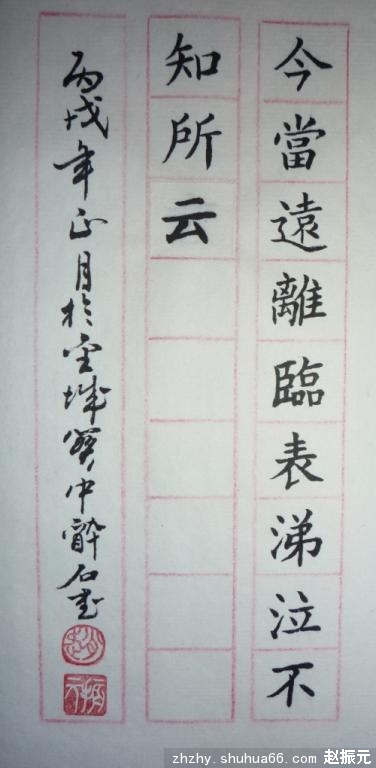 今當遠離臨表涕泣不
知所云
丙戌年正月於金城案中醉石書
zhzhy.shuhua66.com 赵振元